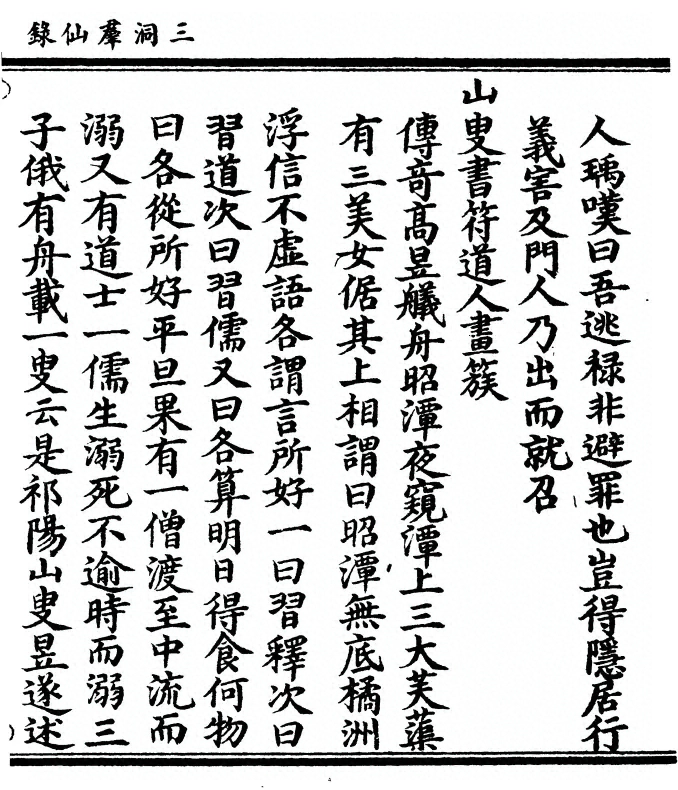 三洞羣仙錄
人瑀嘆曰吾逃祿非避罪也豈得隱居行
義害及門人乃出而就召
山叟書符道人畫簇
傳奇高昱艤舟昭潭夜窺潭上三大芙蕖
有三美女倨其上相謂曰昭潭無底橘洲
浮信不虛語各謂言所好一曰習釋次曰
習道次曰習儒又曰各算明日得食何物
曰各從所好平旦果有一僧渡至中流而
溺又有道士一儒生溺死不逾時而溺三
子俄有舟載一叟云是祁陽山叟昱遂述